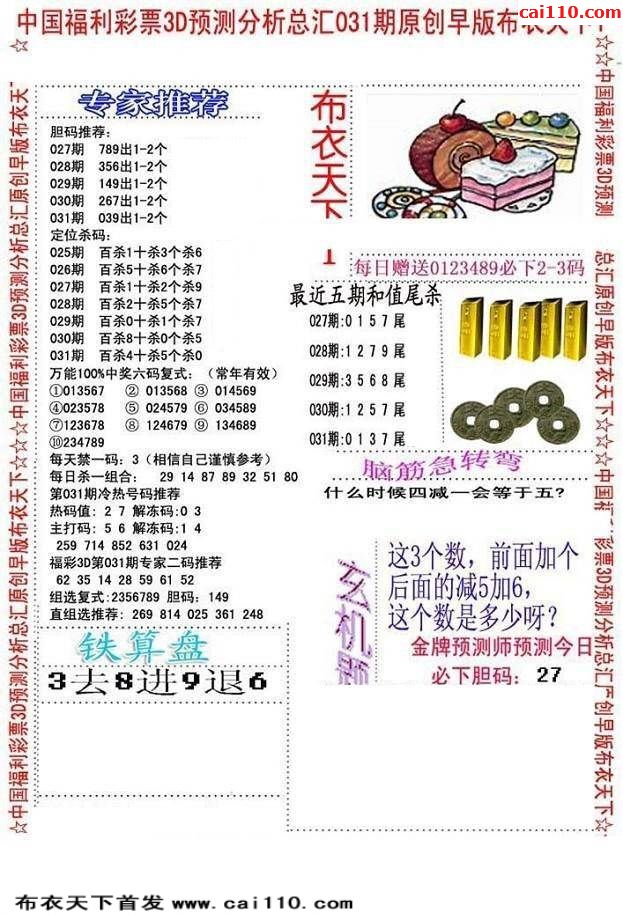 cai110.com
中国福利彩票3D预测分析总汇031期原创早版布衣天下
专家推荐
胆码推荐:
027期 789出1-2个
028期 356出1-2个
029期 149出1-2个
030期 267出1-2个
031期 039出1-2个
定位杀码:
025期 百杀1十杀3个杀6
026期 百杀5十杀6个杀7
027期 百杀1十杀2个杀9
028期 百杀2十杀5个杀7
029期 百杀0十杀1个杀7
030期 百杀8十杀0个杀5
031期 百杀4十杀5个杀0
万能100%中奖六码复式:(常年有效)
①013567 ② 013568 ③ 014569
④023578 ⑤ 024579 ⑥ 034589
⑦123678 ⑧ 124679 ⑨ 134689
⑩234789
每天禁一码: 3(相信自己谨慎参考)
每日杀一组合: 29 14 87 89 32 51 80
第031期冷热号码推荐
热码值: 2 7 解冻码:0 3
主打码: 5 6 解冻码:1 4
259 714 852 631 024
福彩3D第031期专家二码推荐
62 35 14 28 59 61 52
组选复式:2356789 胆码: 149
直组选推荐: 269 814 025 361 248
铁算盘
3去8进9退6
布衣天下
1
每日赠送0123489必下2-3码
最近五期和值尾杀
027期:0 1 5 7 尾
028期:1 2 7 9 尾
029期:3 5 6 8 尾
030期:1 2 5 7 尾
031期:0 1 3 7 尾
脑筋急转弯
什么时候四减一会等于五?
玄机题
这3个数，前面加个
后面的减5加6，
这个数是多少呀?
金牌预测师预测今日
必下胆码: 27
☆中国福利彩票3D预测分析总汇原创早版布衣天下☆☆☆中国福利彩票3D预测分析总汇原创早版布衣天
☆☆中国福利彩票3D预测
总汇原创早版布衣天下☆
☆中国福
彩票3D预测分析总汇
创早版布衣天下☆
布衣天下首发 www.cai110.com